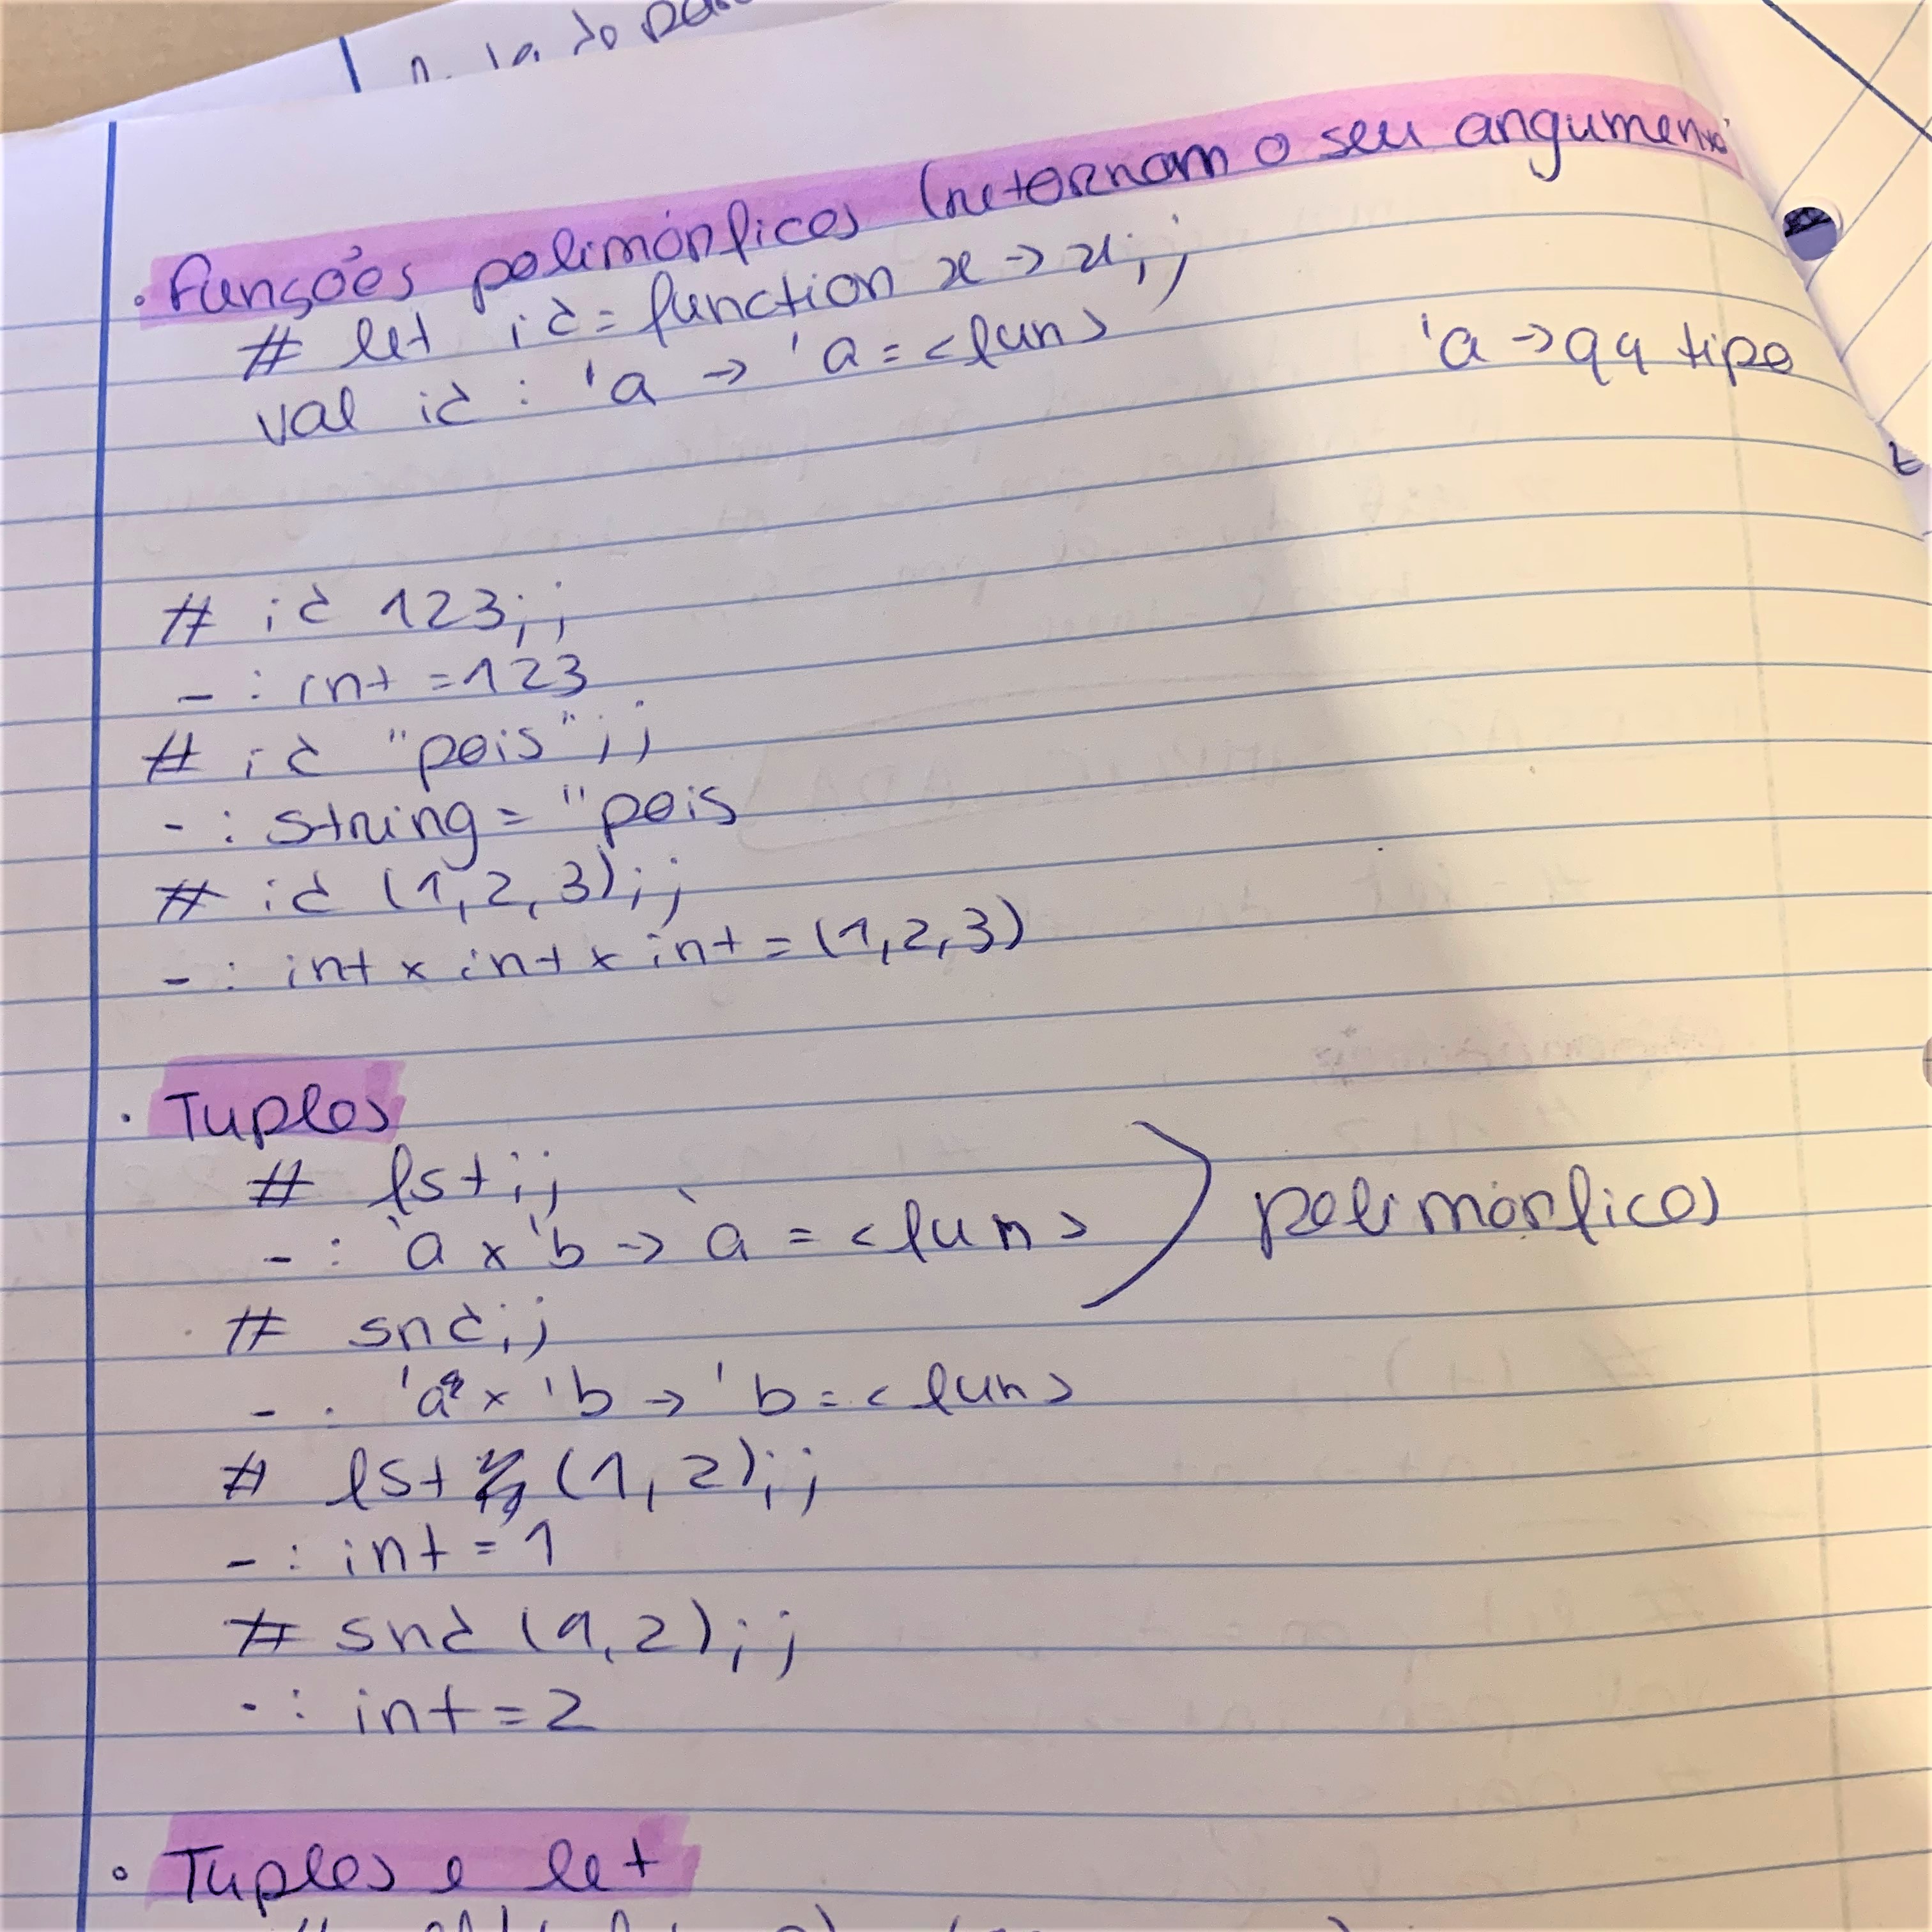 lado
• Funções polimórficas (retornam o seu argumento
# let id = function x -> x;;
val id : 'a -> 'a = <fun>
'a -> qq tipo
# id 123;;
- : int = 123
# id "pois";;
- : string = "pois
# id (1,2,3);;
- : int x int x int = (1,2,3)
• Tuplos
# fst;;
- : 'a x 'b -> 'a = <fun>
polimórficos
# snd;;
- : 'a x 'b -> 'b = <fun>
# fst (1,2);;
- : int = 1
# snd (1,2);;
- : int = 2
• Tuplos e let